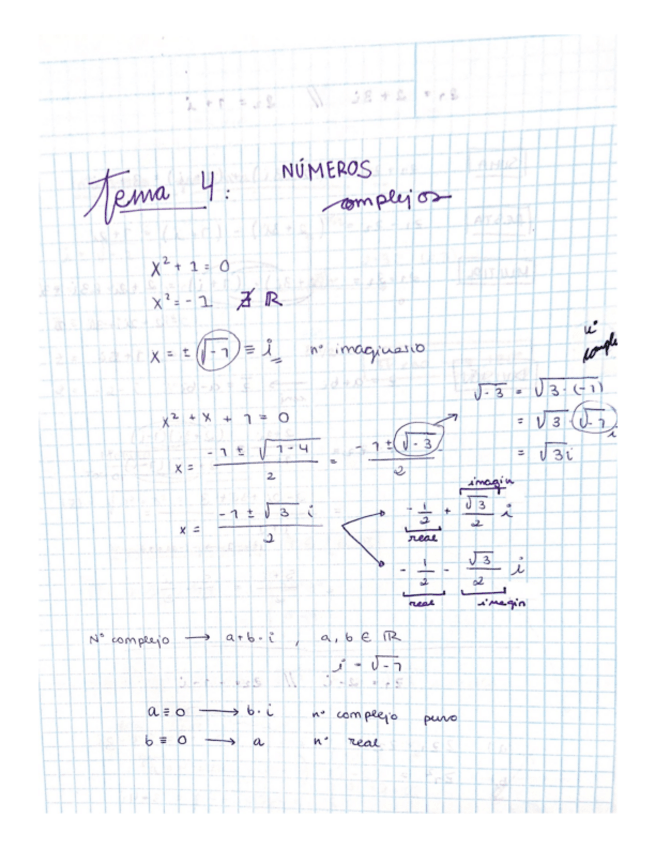 Tema 4: NÚMEROS
complejos
x² + 1 = 0
x² = -1 ∄ ℝ
x = ± √-1 ≡ i nº imaginario
x² + x + 1 = 0
x = (-1 ± √1-4)/2 = (-1 ± √-3)/2
√-3 = √3·(-1)
= √3 √-1 i
= √3i
x = (-1 ± √3 i)/2
imagin
-1/2 + √3/2 i
real
-1/2 - √3/2 i
real imagin
Nº complejo → a+b·i , a, b ∈ ℝ
i = √-1
a ≡ 0 → b·i nº complejo puro
b ≡ 0 → a nº real